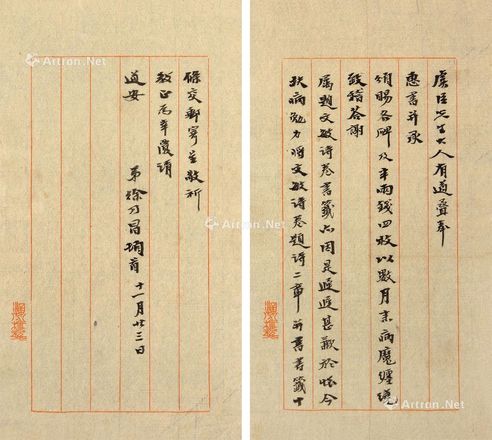 虞臣先生大人有道叠奉
惠書并承
頒賜各碑及半兩錢四枚以數月来病魔纏繞
致稽答謝
属題文敏诗卷書籤亦因是遲遲甚歉於懷今
扶病勉力將文敏诗卷題诗二章并書書籤十
條交郵寄呈敬祈
教正為幸覆請
道安 弟徐乃昌頓首 十一月廿三日
Artron.Net
Artron.Net
Artron.Net
Artron.Net